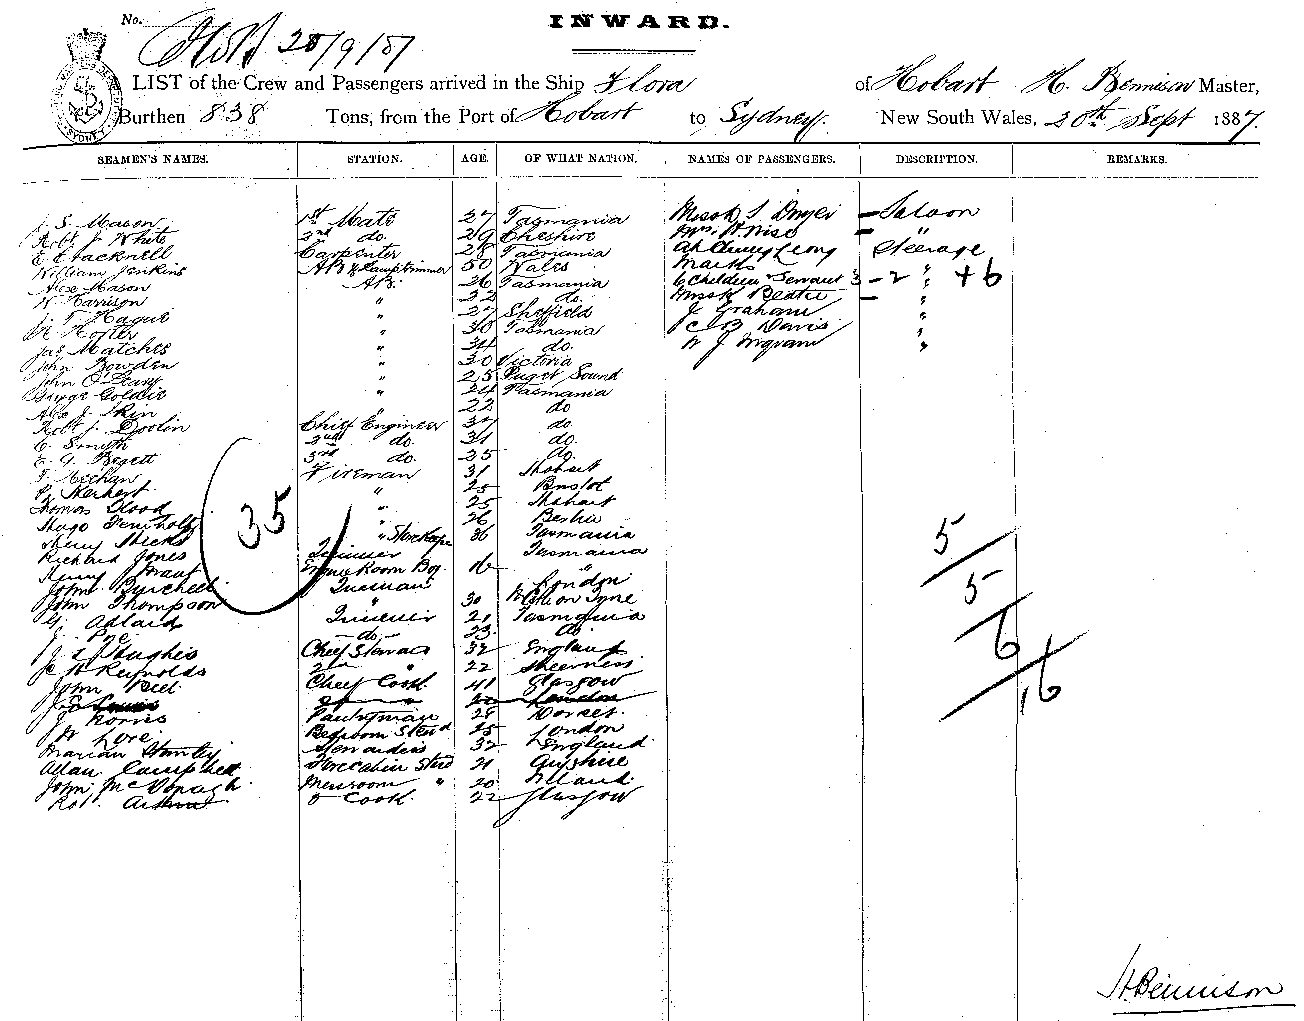 No.
INWARD.
20/9/87
LIST of the Crew and Passengers arrived in the Ship Flora of Hobart H. Bennison Master,
Burthen 838 Tons, from the Port of Hobart to Sydney New South Wales, 20th Sept 1887.
SEAMEN'S NAMES. STATION. AGE. OF WHAT NATION. NAMES OF PASSENGERS. DESCRIPTION. REMARKS.
S. Mason 1st Mate 27 Tasmania Saloon
Robt J. White 2nd do. 29 Cheshire "
E Stacknell Carpenter 28 Tasmania Steerage
William Jenkins AB & Lamptrimmer 50 Wales Marks
Alex Mason AB. 26 Tasmania 6 Children & Servant 3 - 2 " + 6
W Harrison " 22 do. "
T Hague " 27 Sheffield J Graham "
" 30 Tasmania C B Davis "
Jas Matches " 34 do. W J Ingram "
John Bowden " 30 Victoria
John O'Leary " 25 Puget Sound
George Goldie " 24 Tasmania
Alex J. Skin " 22 do
Robt J. Doolin Chief Engineer 37 do.
E. Smyth 2nd do. 31 do.
E. G. 3rd do. 25 do.
T Meehan Fireman 31 Hobart
P. Herbert " 25 Bristol
Thomas Flood " 25 Hobart
Hugo " 26
Henry Hicks " Storekeeper 36 Tasmania
Richard Jones Trimmer Tasmania
Henry Room Boy 16 "
John Byrchell London
John Thompson " 30
G. Adlard Trimmer 21 Tasmania
J. Pye do 23 do
J. L. Hughis Chief Steward 32 England
C H Reynolds 2nd " 22 Sheerness
John Bell Chief Cook 41 Glasgow
" London
J. Norris Pantryman 28 Dorset
W Love Bedroom Stewd 25 London
Marian Stanley Stewardess 32 England
Allan Campbell Forecabin Stwd 21 Ayshire
John McDonagh Messroom " 20 Irland
Rob. Cook 22 Glasgow
35
5
5
6
16
H Bennison